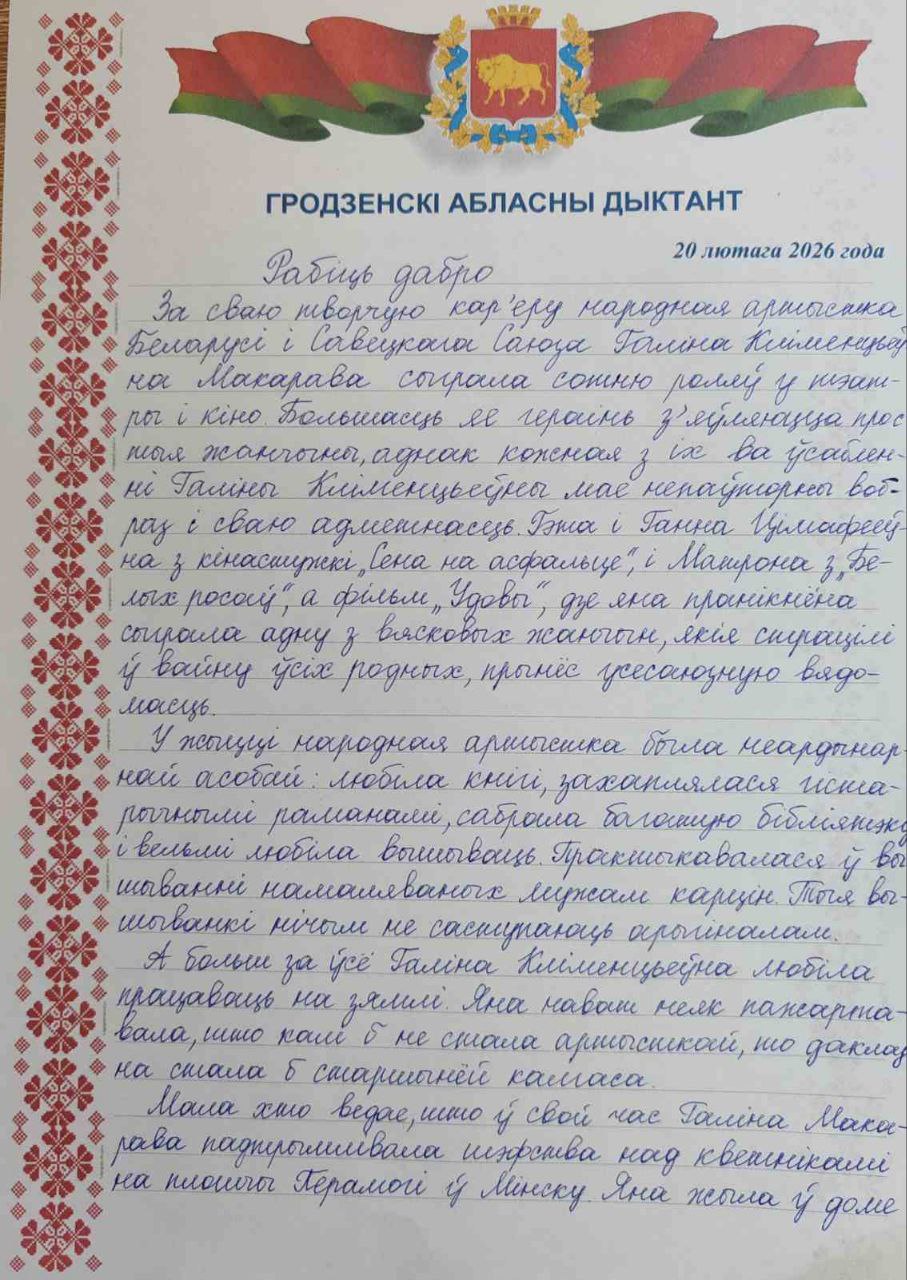 ГРОДЗЕНСКІ АБЛАСНЫ ДЫКТАНТ
20 лютага 2026 года
Рабіць дабро
За сваю творчую кар'еру народная артыстка
Беларусі і Савецкага Саюза Галіна Кліменцьеў
на Макарава сыграла сотню роляў у тэат-
ры і кіно. Большасць яе гераінь з'яўляюцца прос
тыя жанчыны, аднак кожная з іх ва ўсаблен-
ні Галіны Кліменцьеўны мае непаўторны воб-
раз і сваю адметнасць. Гэта і Ганна Цімафееў
на з кінастужкі „Сена на асфальце“, і Матрона з „Бе-
лых росаў“, а фільм „Удовы“, дзе яна пранікнёна
сыграла адну з вясковых жанчын, якія страцілі
ў вайну ўсіх родных, прынёс усесаюзную вядо-
масць.
У жыцці народная артыстка была неардынар-
най асобай: любіла кнігі, захаплялася гіста-
рычнымі раманамі, сабрала багатую бібліятэку
і вельмі любіла вышываць. Практыкавалася ў вы
шыванні намаляваных мужам карцін. Тыя вы-
шыванкі нічым не саступаюць арыгіналам.
А больш за ўсё Галіна Кліменцьеўна любіла
працаваць на зямлі. Яна нават неяк пажарта-
вала, што калі б не стала артысткай, то даклад
на стала б старшынёй калгаса.
Мала хто ведае, што ў свой час Галіна Мака-
рава падтрымлівала шэфства над кветнікамі
на плошчы Перамогі ў Мінску. Яна жыла ў доме